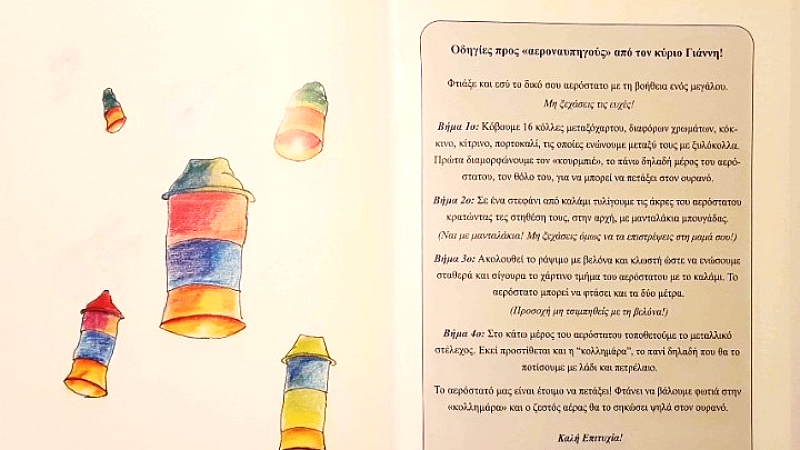 Οδηγίες προς «αεροναυπηγούς» από τον κύριο Γιάννη!
Φτιάξε και εσύ το δικό σου αερόστατο με τη βοήθεια ενός μεγάλου.
Μη ξεχάσεις τις ευχές!
Βήμα 1ο: Κόβουμε 16 κόλλες μεταξόχαρτου, διαφόρων χρωμάτων, κόκ-
κινο, κίτρινο, πορτοκαλί, τις οποίες ενώνουμε μεταξύ τους με ξυλόκολλα.
Πρώτα διαμορφώνουμε τον «κουρμπιέ», το πάνω δηλαδή μέρος του αερό-
στατου, τον θόλο του, για να μπορεί να πετάξει στον ουρανό.
Βήμα 2ο: Σε ένα στεφάνι από καλάμι τυλίγουμε τις άκρες του αερόστατου
κρατώντας τες στηθέση τους, στην αρχή, με μανταλάκια μπουγάδας.
(Ναι με μανταλάκια! Μη ξεχάσεις όμως να τα επιστρέψεις στη μαμά σου!)
Βήμα 3ο: Ακολουθεί το ράψιμο με βελόνα και κλωστή ώστε να ενώσουμε
σταθερά και σίγουρα το χάρτινο τμήμα του αερόστατου με το καλάμι. Το
αερόστατο μπορεί να φτάσει και τα δύο μέτρα.
(Προσοχή μη τσιμπηθείς με τη βελόνα!)
Βήμα 4ο: Στο κάτω μέρος του αερόστατου τοποθετούμε το μεταλλικό
στέλεχος. Εκεί προστίθεται και η “κολλημάρα”, το πανί δηλαδή που θα το
ποτίσουμε με λάδι και πετρέλαιο.
Το αερόστατό μας είναι έτοιμο να πετάξει! Φτάνει να βάλουμε φωτιά στην
«κολλημάρα» και ο ζεστός αέρας θα το σηκώσει ψηλά στον ουρανό.
Καλή Επιτυχία!